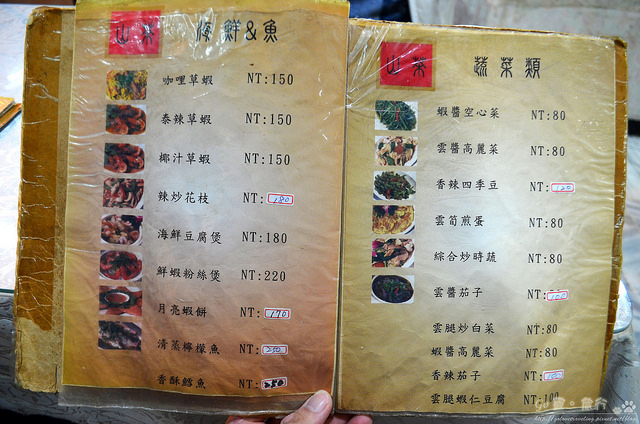 山茶 海鮮&魚
咖哩草蝦 NT:150
泰辣草蝦 NT:150
椰汁草蝦 NT:150
辣炒花枝 NT:180
海鮮豆腐煲 NT:180
鮮蝦粉絲煲 NT:220
月亮蝦餅 NT:170
清蒸檸檬魚 NT:250
香酥鱈魚 NT:250
山茶 蔬菜類
蝦醬空心菜 NT:80
雲醬高麗菜 NT:80
香辣四季豆 NT:120
雲筍煎蛋 NT:80
綜合炒時蔬 NT:80
雲醬茄子 NT:100
雲腿炒白菜 NT:80
蝦醬高麗菜 NT:80
香辣茄子 NT:100
雲腿蝦仁豆腐 NT:100